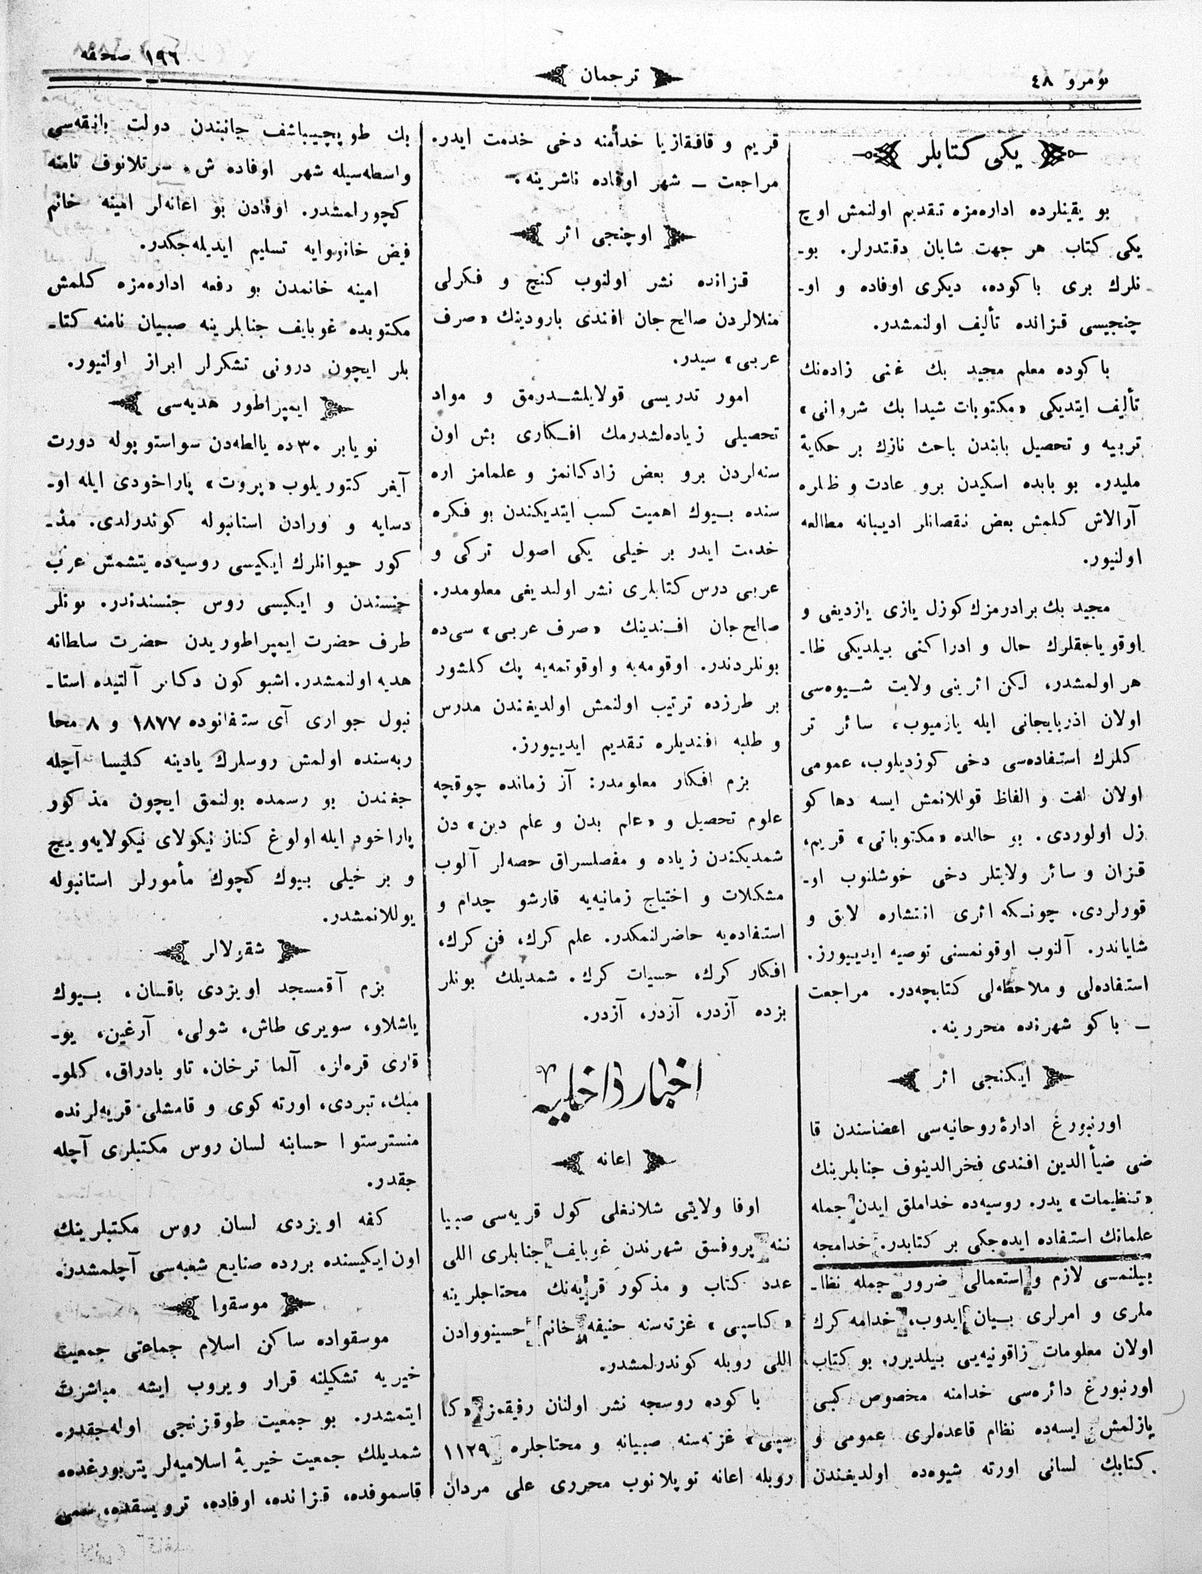 نومرو ٤٨
ترجمان
١٩٦ صحفه
یكی كتابلر
بو یقینلرده اداره‌مزه تقدیم اولنمش اوچ
یكی كتاب هر جهت شایان دقتدرلر. بو-
نلرك بری باكوده، دیكری اوفاده و او-
چنجیسی قزانده تألیف اولنمشدر.
باكوده معلم مجید بك غنی زاده‌نك
تألیف ایتدیكی «مكتوبات شیدا بك شروانی»
تربیه و تحصیل بابندن باحث نازك بر حكایة
ملیدر. بو بابده اسكیدن برو عادت و ظلره
آرالاش كلمش بعض نقصانلر ادیبانه مطالعه
اولنیور.
مجید بك برادرمزك كوزل یازی یازدیغی و
اوقویاجقلرك حال و ادراكنی بیلدیكی ظا-
هر اولمشدر، لكن اثرینی ولایت شیوه‌سی
اولان اذربایجانی ایله یازمیوب، سائر تر
كلرك استفاده‌سی دخی كوزدیلوب، عمومی
اولان لغت و الفاظ قوللانمش ایسه دها كو
زل اولوردی. بو حالده «مكتوباتی» قریم،
قزان و سائر ولایتلر دخی خوشلنوب او-
قورلردی. چونكه اثری انتشاره لایق و
شایاندر. آلنوب اوقونمسنی توصیه ایدییورز.
استفاده‌لی و ملاحظه‌لی كتابچه‌در. مراجعت
— باكو شهرنده محررینه.
ایكنجی اثر
اورنبورغ ادارهٔ روحانیه‌سی اعضاسندن قا
ضی ضیأالدین افندی فخرالدینوف جنابلرینك
«تنظیمات» یدر. روسیه‌ده خداملق ایدن جمله
علمانك استفاده ایده‌جكی بر كتابدر. خدامجه
بیلنمسی لازم و استعمالی ضرور جمله نظا-
ملری و امرلری بیان ایدوب، خدامه كرك
اولان معلومات زاقونیه‌یی بیلدیرر. بو كتاب
اورنبورغ دائره‌سی خدامنه مخصوص كبی
یازلمش ایسه‌ده نظام قاعده‌لری عمومی و
كتابك لسانی اورته شیوه‌ده اولدیغندن
قریم و قافقازیا خدأمنه دخی خدمت ایدر.
مراجعت — شهر اوفاده ناشرینه.
اوچنجی اثر
قزانده نشر اولنوب كنج و فكرلی
منلالردن صالح جان افندی بارودینك «صرف
عربی» سیدر.
امور تدریسی قولایلشدرمق و مواد
تحصیلی زیاده‌لشدرمك افكاری بش اون
سنه‌لردن برو بعض زادكانمز و علمامز اره
سنده بیوك اهمیت كسب ایتدیكندن بو فكره
خدمت ایدر بر خیلی یكی اصول تركی و
عربی درس كتابلری نشر اولندیغی معلومدر.
صالح جان افندینك «صرف عربی» سی‌ده
بونلردندر. اوقومه‌یه و اوقوتمه‌یه پك كلشور
بر طرزده ترتیب اولنمش اولدیغندن مدرس
و طلبه افندیلره تقدیم ایدییورز.
بزم افكار معلومدر: آز زمانده چوقچه
علوم تحصیل و «علم بدن و علم دین» دن
شمدیكندن زیاده و مفصلراق حصه‌لر آلوب
مشكلات و احتیاج زمانیه‌یه قارشو چدام و
استفاده‌یه حاضرلنمكدر. علم كرك، فن كرك،
افكار كرك، حسیات كرك. شمدیلك بونلر
بزده آزدر، آزدر، آزدر.
اخبار داخلیه
اعانه
اوفا ولایتی شلانغلی كول قریه‌سی صبیا
ننه پروفسق شهرندن غوبایف جنابلری اللی
عدد كتاب و مذكور قریه‌نك محتاجلرینه
«كاسپی» غزته‌سنه حنیفه خانم حسینووادن
اللی روبله كوندرلمشدر.
باكوده روسجه نشر اولنان رفیقمز «كا
سپی» غزته‌سنه صبیانه و محتاجلره ١١٢٩
روبله اعانه توپلانوب محرری علی مردان
بك طوپچیباشف جانبندن دولت بانقه‌سی
واسطه‌سیله شهر اوفاده ش. سرتلانوف نامنه
كچورلمشدر. اوفادن بو اعانه‌لر امینه خانم
فیض خانووایه تسلیم ایدیله‌جكدر.
امینه خانمدن بو دفعه اداره‌مزه كلمش
مكتوبده غوبایف جنابلرینه صبیان نامنه كتا-
بلر ایچون درونی تشكرلر ابراز اولنیور.
ایمپراطور هدیه‌سی
نویابر ٣٠ ده یالطه‌دن سواستوپوله دورت
آیغر كتوریلوب «پروت» پاراخودی ایله او-
دسایه و اورادن استانبوله كوندرلدی. مذ-
كور حیوانلرك ایكیسی روسیه‌ده یتشمش عرب
جنسندن و ایكیسی روس جنسندندر. بونلر
طرف حضرت ایمپراطوریدن حضرت سلطانه
هدیه اولنمشدر. اشبو كون دكابر آلتیده استا-
نبول جواری آی ستفانوده ١٨٧٧ و ٨ محا
ربه‌سنده اولمش روسلرك یادینه كلیسا آچله
جغندن بو رسمده بولنمق ایچون مذكور
پاراخود ایله اولوغ كناز نیكولای نیكولایه‌ویچ
و بر خیلی بیوك كچوك مأمورلر استانبوله
یوللانمشدر.
شقوللالر
بزم آقمسجد اویزدی باقسان، بیوك
یاشلاو، سویری طاش، شولی، آرغین، یو-
قاری قره‌لز، آلما ترخان، تاو بادراق، كلو-
مبك، تبردی، اورته كوی و قامشلی قریه‌لرنده
منسترستوا حسابنه لسان روس مكتبلری آچله
جقدر.
كفه اویزدی لسان روس مكتبلرینك
اون ایكیسنده بررده صنایع شعبه‌سی آچلمشدر.
موسقوا
موسقواده ساكن اسلام جماعتی جمعیت
خیریه تشكیلنه قرار ویروب ایشه مباشرت
ایتمشدر. بو جمعیت طوقزنجی اوله‌جقدر.
شمدیلك جمعیت خیریهٔ اسلامیه‌لر پتربورغده،
قاسموفده، قزانده، اوفاده، ترویسقده،